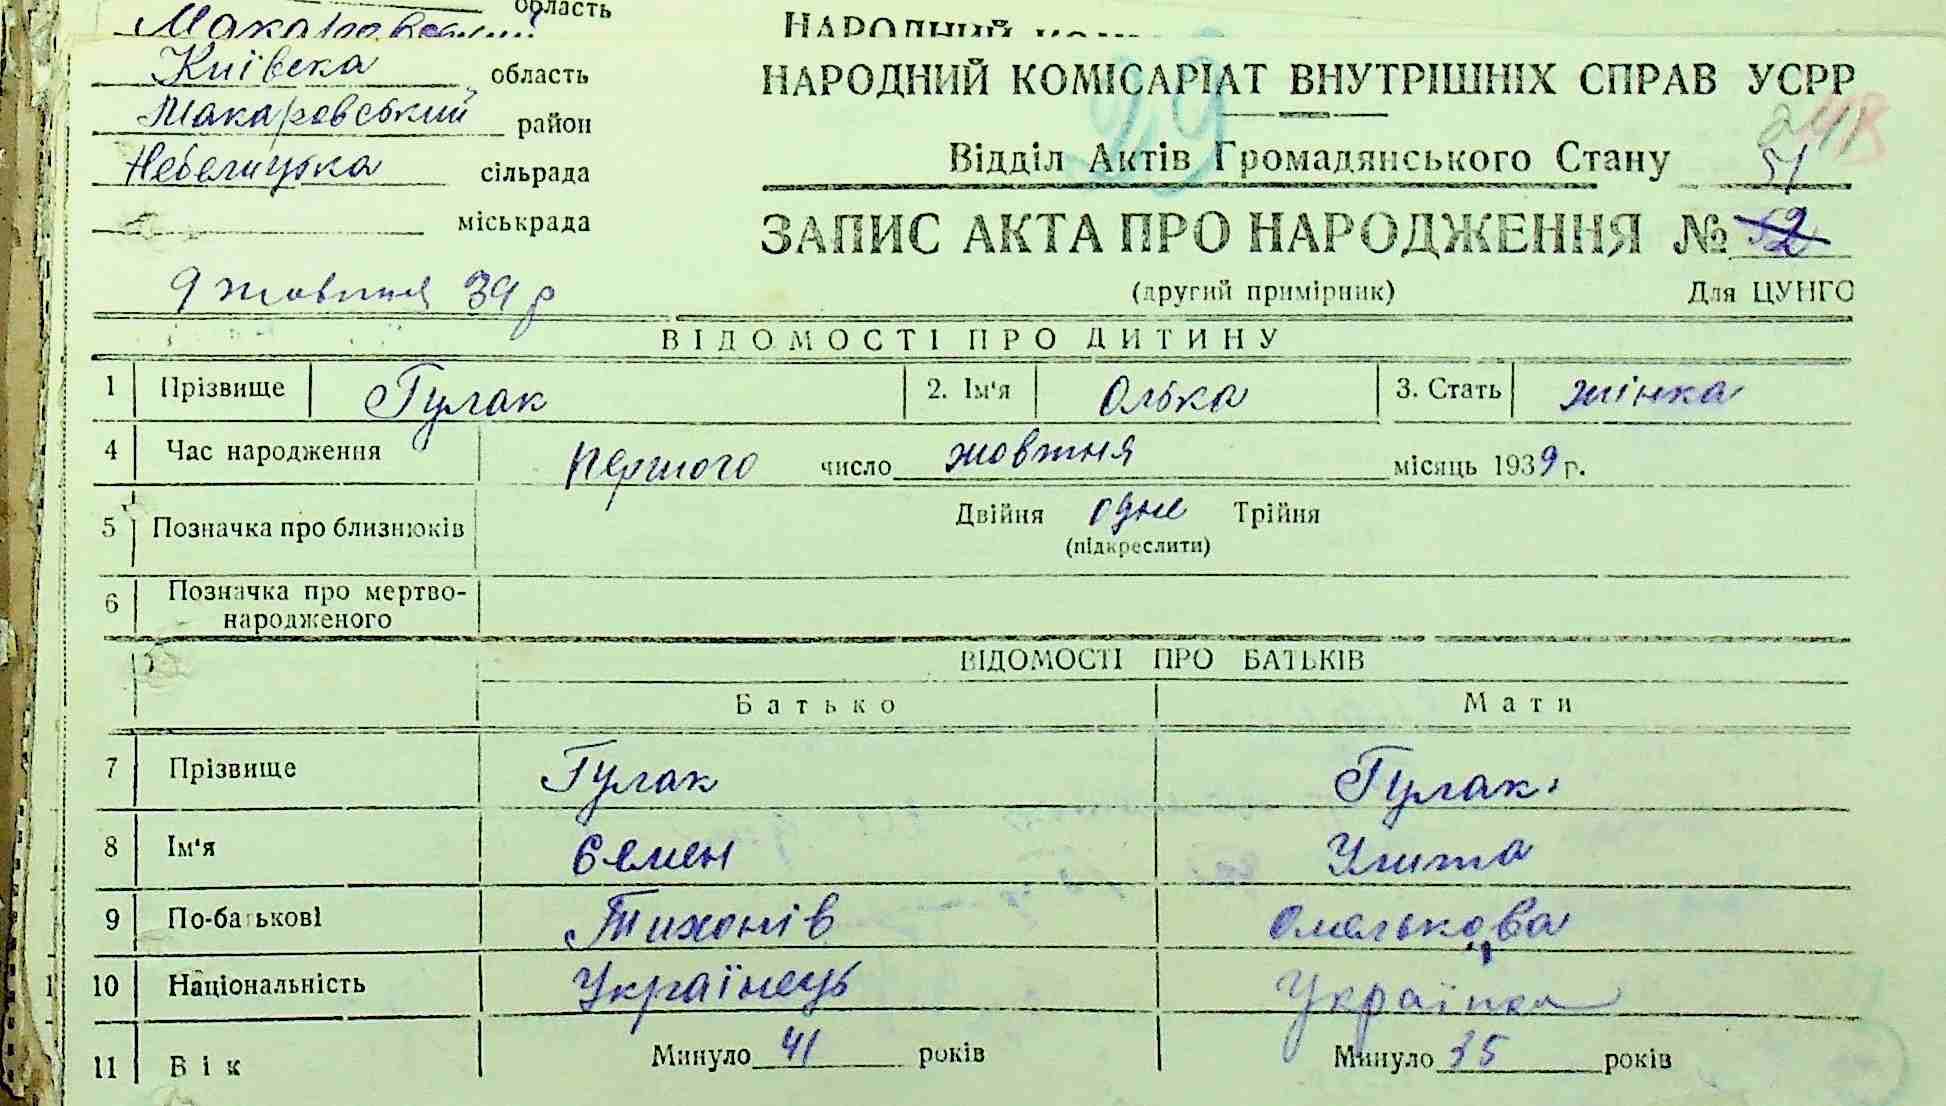 область
Макаровський
НАРОДНИЙ
Київска область
НАРОДНИЙ КОМІСАРІАТ ВНУТРІШНІХ СПРАВ УСРР
29
Макаровський район
241
Відділ Актів Громадянського Стану 51
Небелицька сільрада
міськрада
ЗАПИС АКТА ПРО НАРОДЖЕННЯ № 52
9 жовтня 39 р
(другий примірник) Для ЦУНГО
ВІДОМОСТІ ПРО ДИТИНУ
1 Прізвище Гулак 2. Ім'я Олька 3. Стать жінка
4 Час народження першого число жовтня місяць 1939 р.
5 Позначка про близнюків Двійня одне Трійня
(підкреслити)
6 Позначка про мертво-
народженого
ВІДОМОСТІ ПРО БАТЬКІВ
Батько Мати
7 Прізвище Гулак Гулак
8 Ім'я Семен Улита
9 По-батькові Тихонів Омелькова
10 Національність Українець Українка
11 Вік Минуло 41 років Минуло 35 років